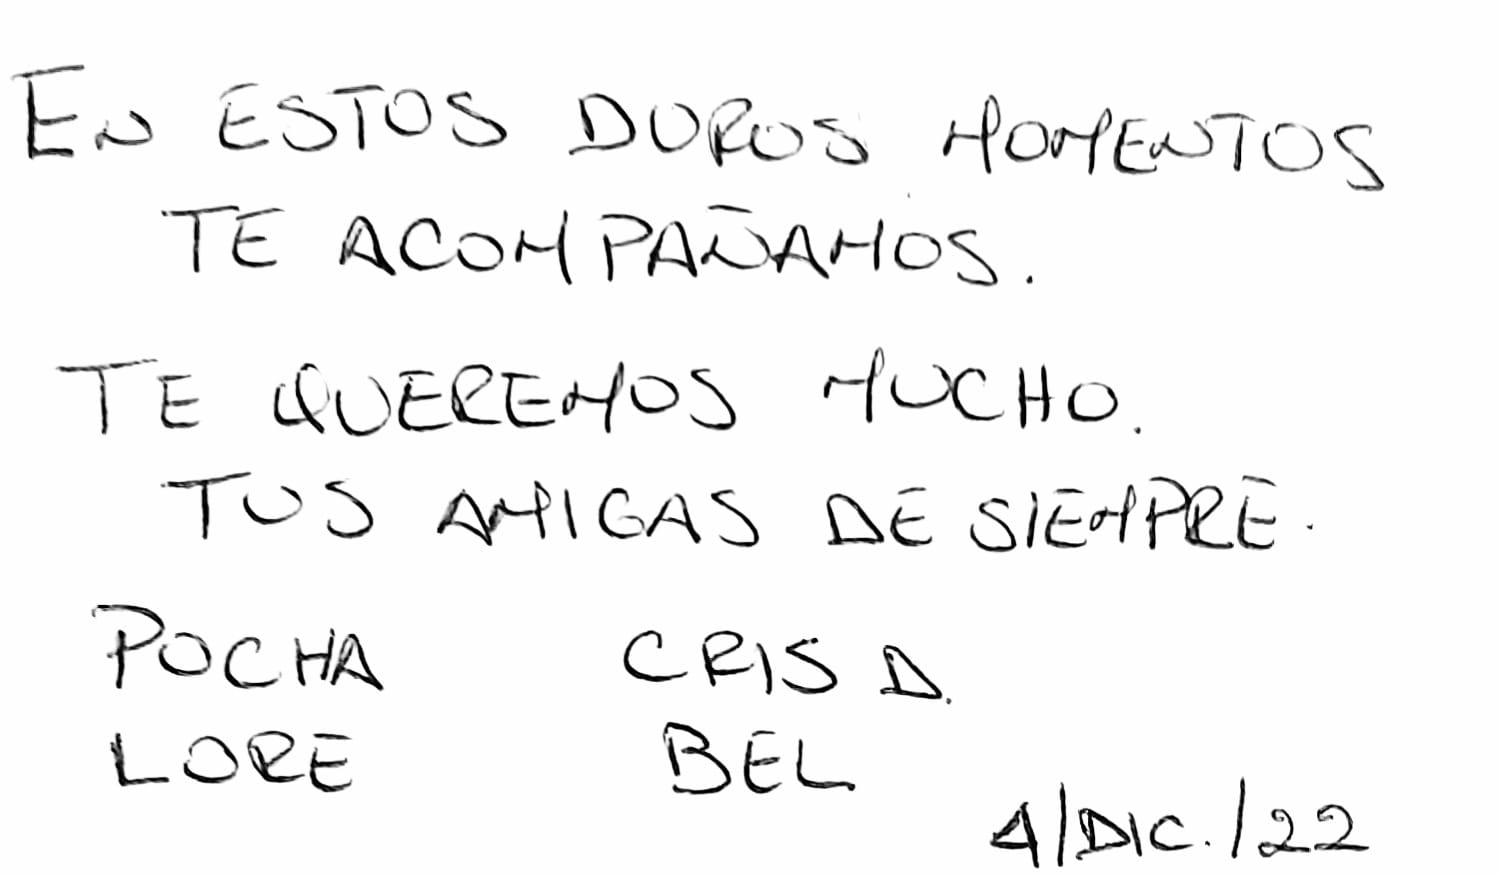 EN ESTOS DUROS MOMENTOS
TE ACOMPAÑAMOS.
TE QUEREMOS MUCHO.
TUS AMIGAS DE SIEMPRE.
POCHA CRIS D.
LORE BEL
4/DIC./22